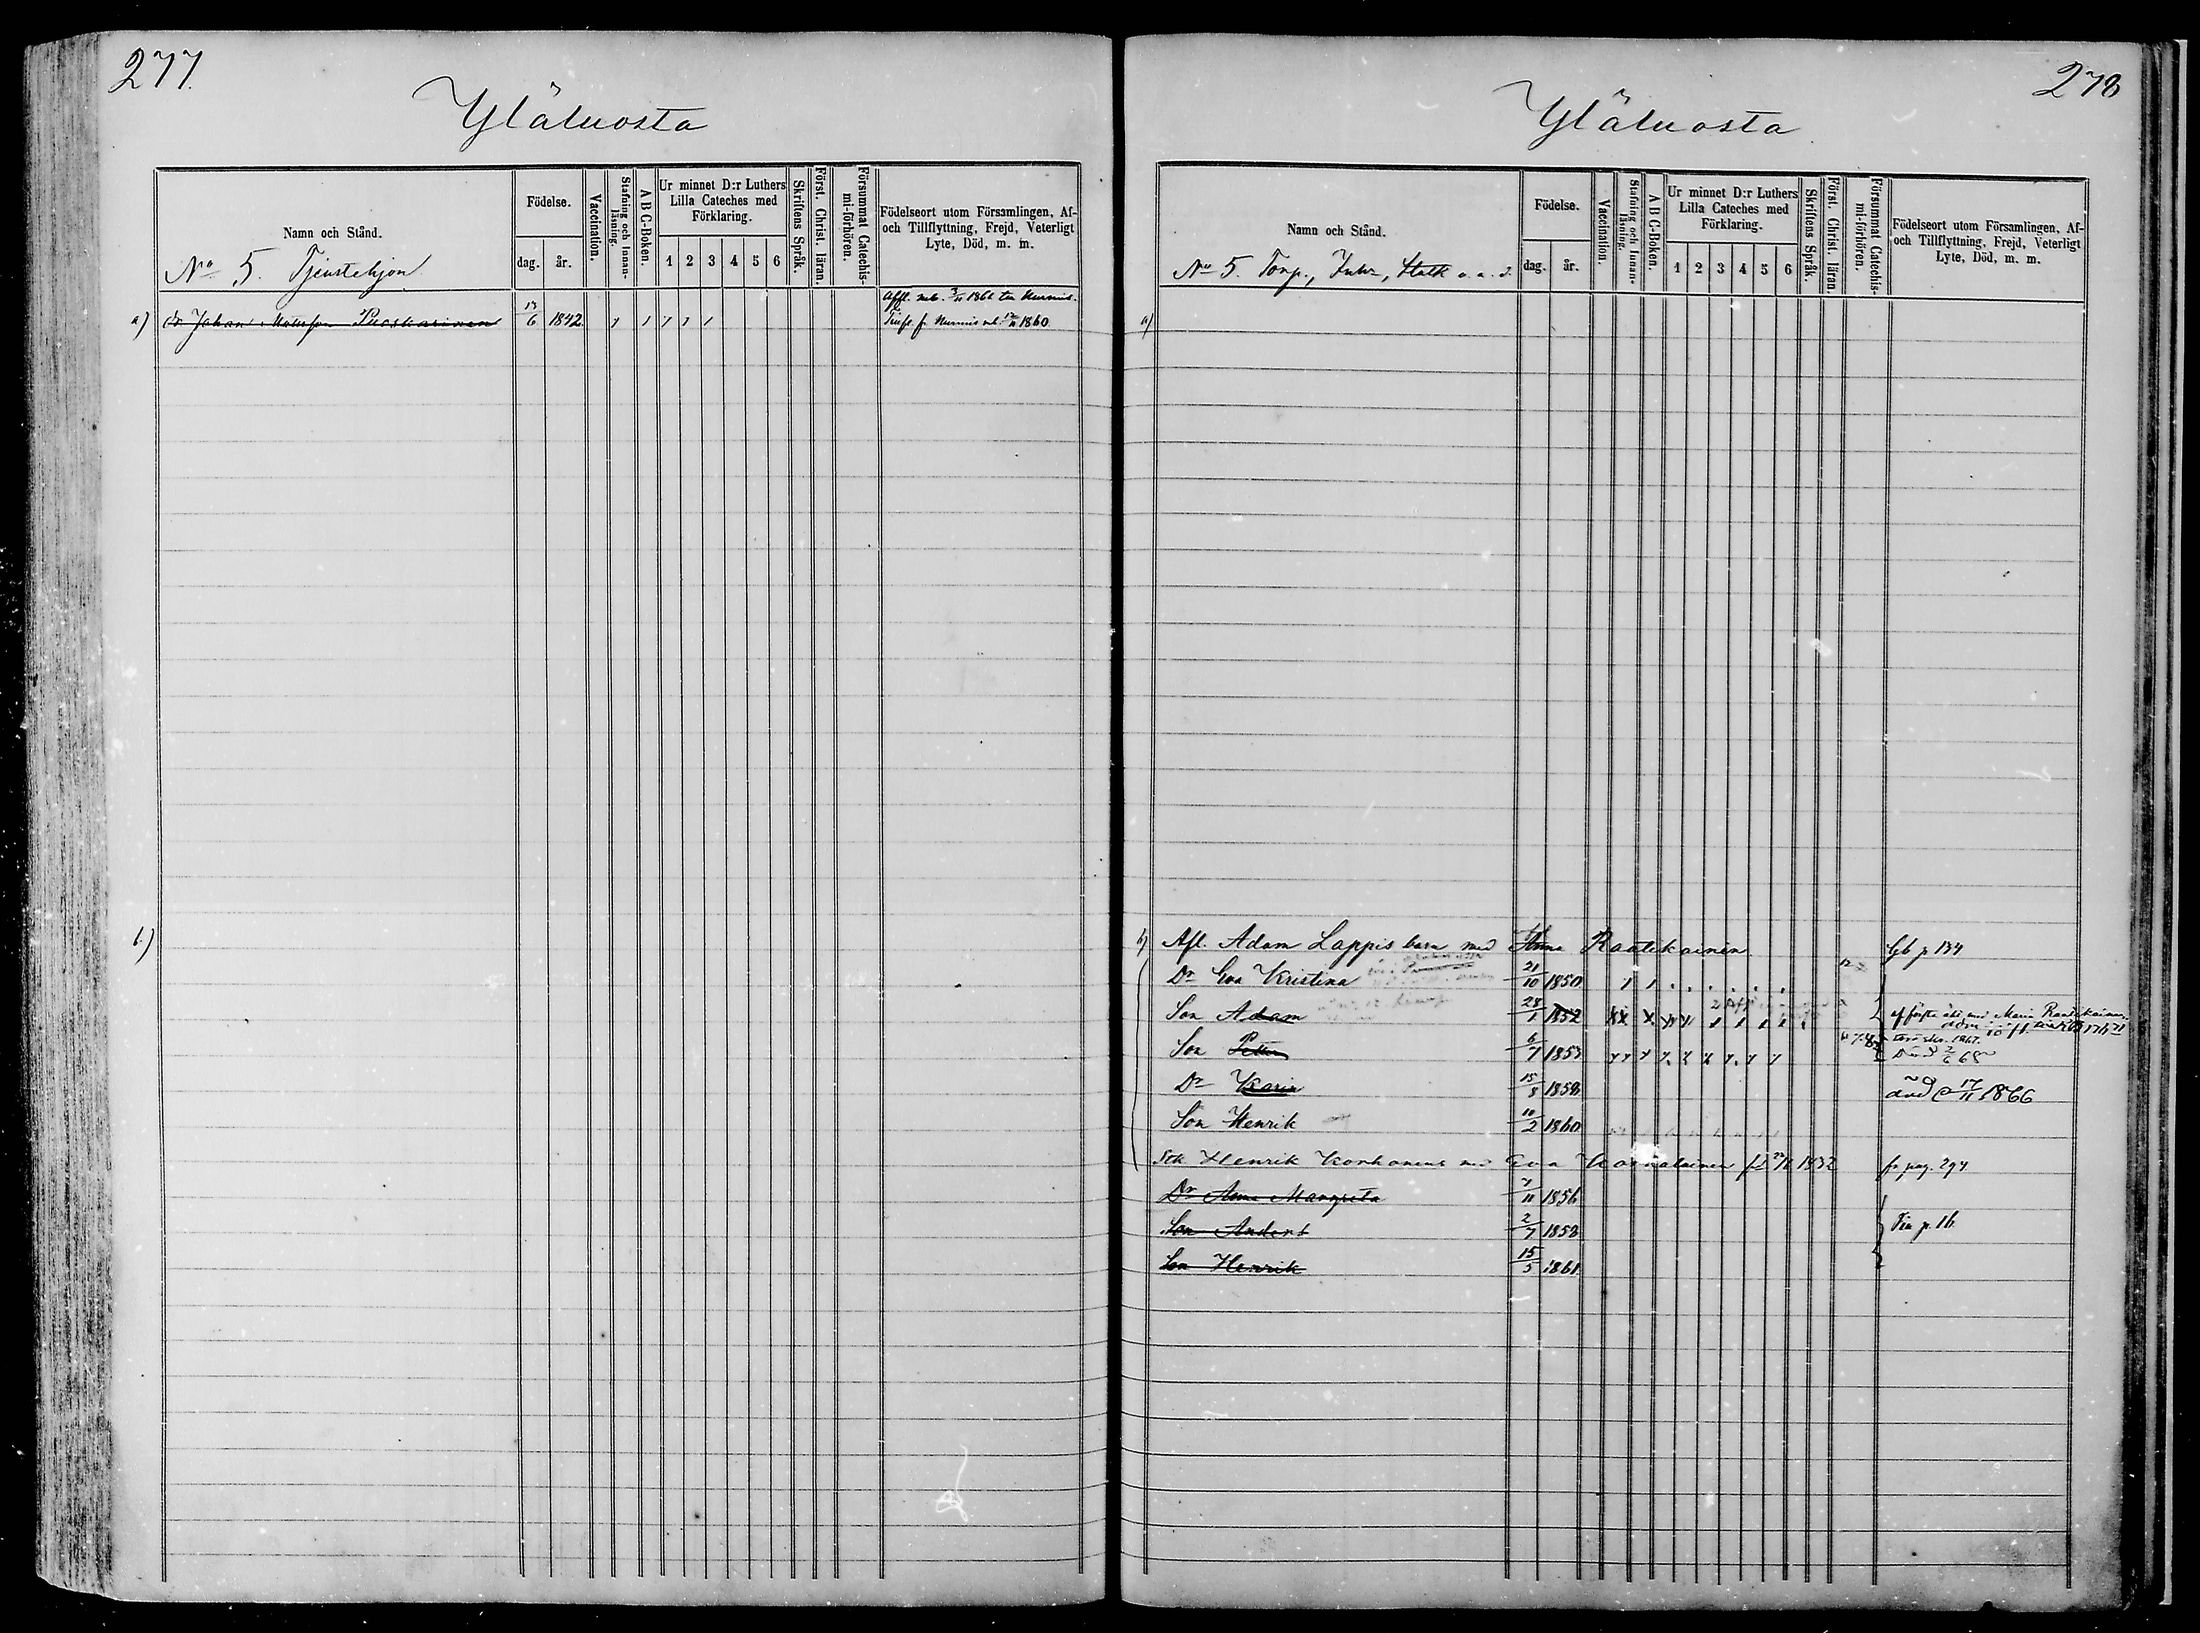 277.
Yläluosta
Namn och Stånd.
Födelse.
dag.
år.
Vaccination.
Stafning och Innanläsning.
A B C-Boken.
Ur minnet D:r Luthers
Lilla Cateches med
Förklaring.
1 2 3 4 5 6
Skriftens Språk.
Först. Christ. läran.
Försummat Catechismi-förhören.
Födelseort utom Församlingen, Af-
och Tillflyttning, Frejd, Veterligt
Lyte, Död, m. m.
No 5. Tjenstehjon
a) Johan Puoskarinen 13/6 1842
Nurmis 1860
b.)
278
Yläluosta
Namn och Stånd.
Födelse.
dag.
år.
Vaccination.
Stafning och Innanläsning.
A B C-Boken.
Ur minnet D:r Luthers
Lilla Cateches med
Förklaring.
1 2 3 4 5 6
Skriftens Språk.
Först. Christ. läran.
Försummat Catechismi-förhören.
Födelseort utom Församlingen, Af-
och Tillflyttning, Frejd, Veterligt
Lyte, Död, m. m.
No 5. Torp., Inhs, Statk o. a. d.
a)
b) Afl. Adam Lappis barn med Anna Raatikainen p 134
Dr Eva Kristina 21/10 1850
Son Adam 28/1 1852 med Maria Raatikainen
Son Petter 6/7 1855 Död 2/6 68
Dr Karin 15/8 1858 död 17/11 1866
Son Henrik 10/2 1860
Henrik Korhonens med Eva 1832 fr pag. 294
Dr Anna Margreta 7/11 1856
Son Anders 2/7 1858 p. 16
Son Henrik 15/5 1861